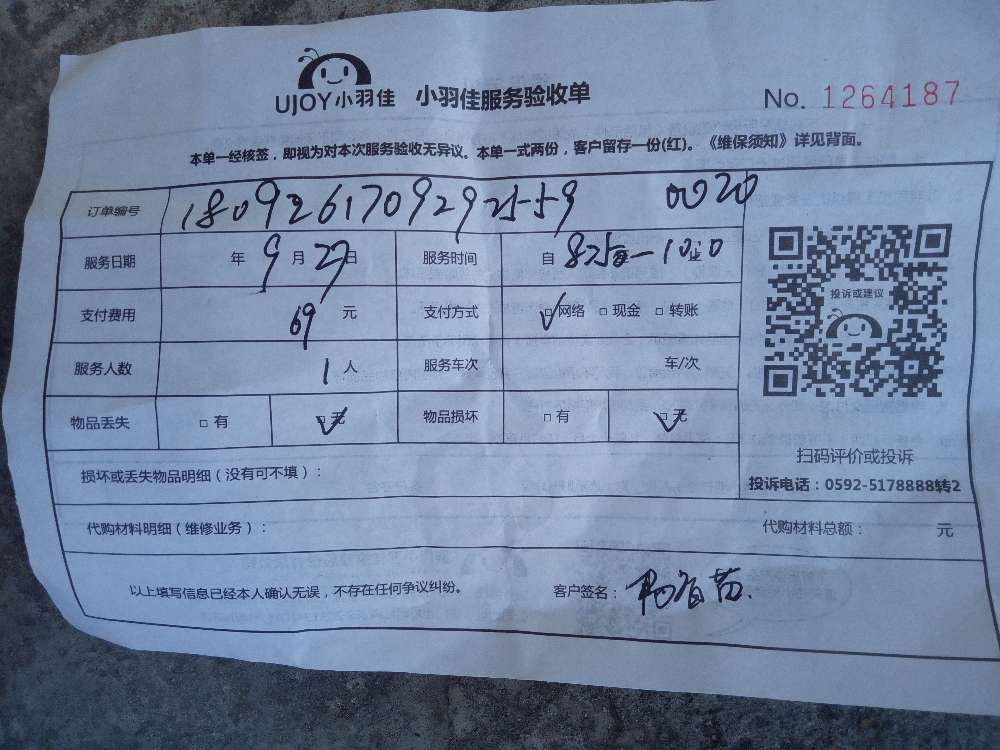 UJOY小羽佳 小羽佳服务验收单 No. 1264187
本单一经核签，即视为对本次服务验收无异议。本单一式两份，客户留存一份(红)。《维保须知》详见背面。
订单编号 18092617092925559 0020
服务日期 年 9 月 27 日 服务时间 自
支付费用 69 元 支付方式 网络 现金 转账
投诉或建议
服务人数 1 人 服务车次 车/次
物品丢失 有 无 物品损坏 有 无
扫码评价或投诉
损坏或丢失物品明细（没有可不填）：
投诉电话：0592-5178888转2
代购材料明细（维修业务）： 代购材料总额： 元
以上填写信息已经本人确认无误，不存在任何争议纠纷。 客户签名：